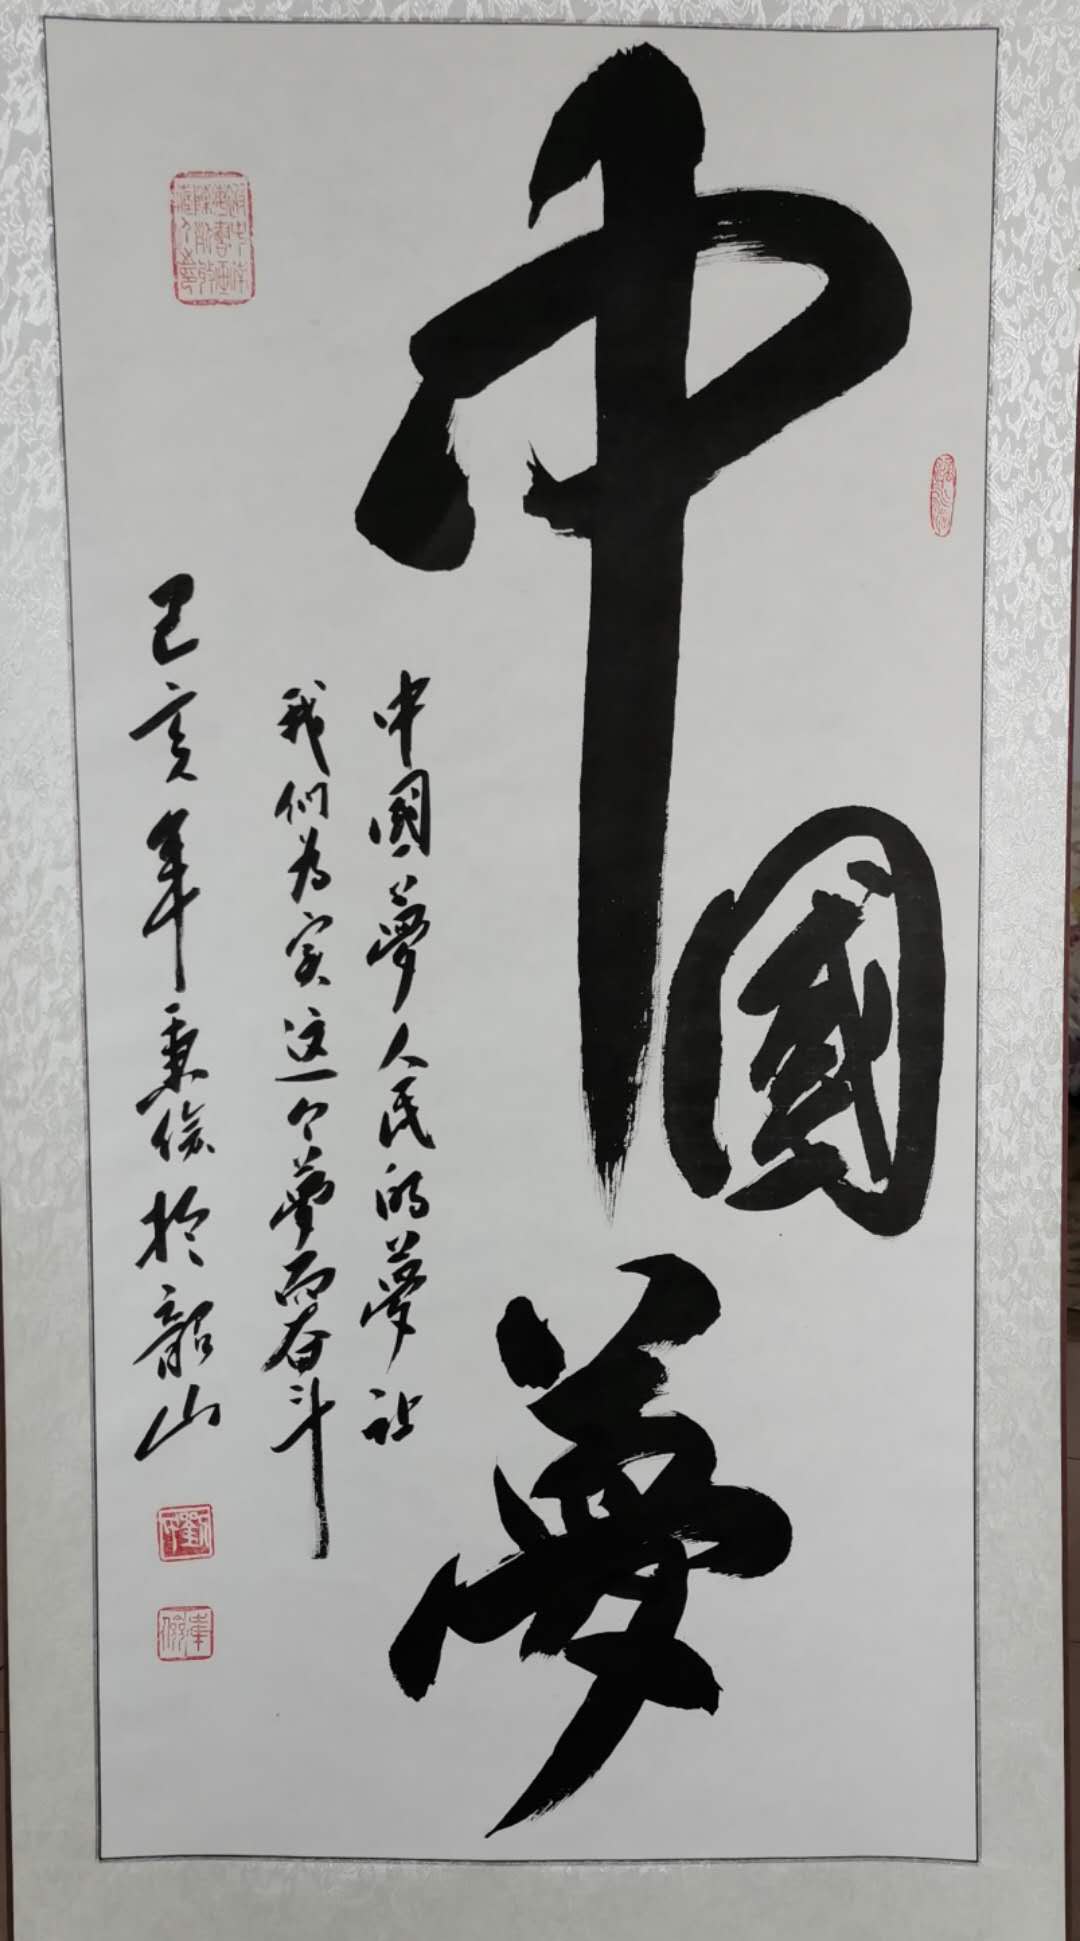 中國夢
中國夢人民的夢让
我们为实这一个夢而奋斗
己亥年秉俭於韶山